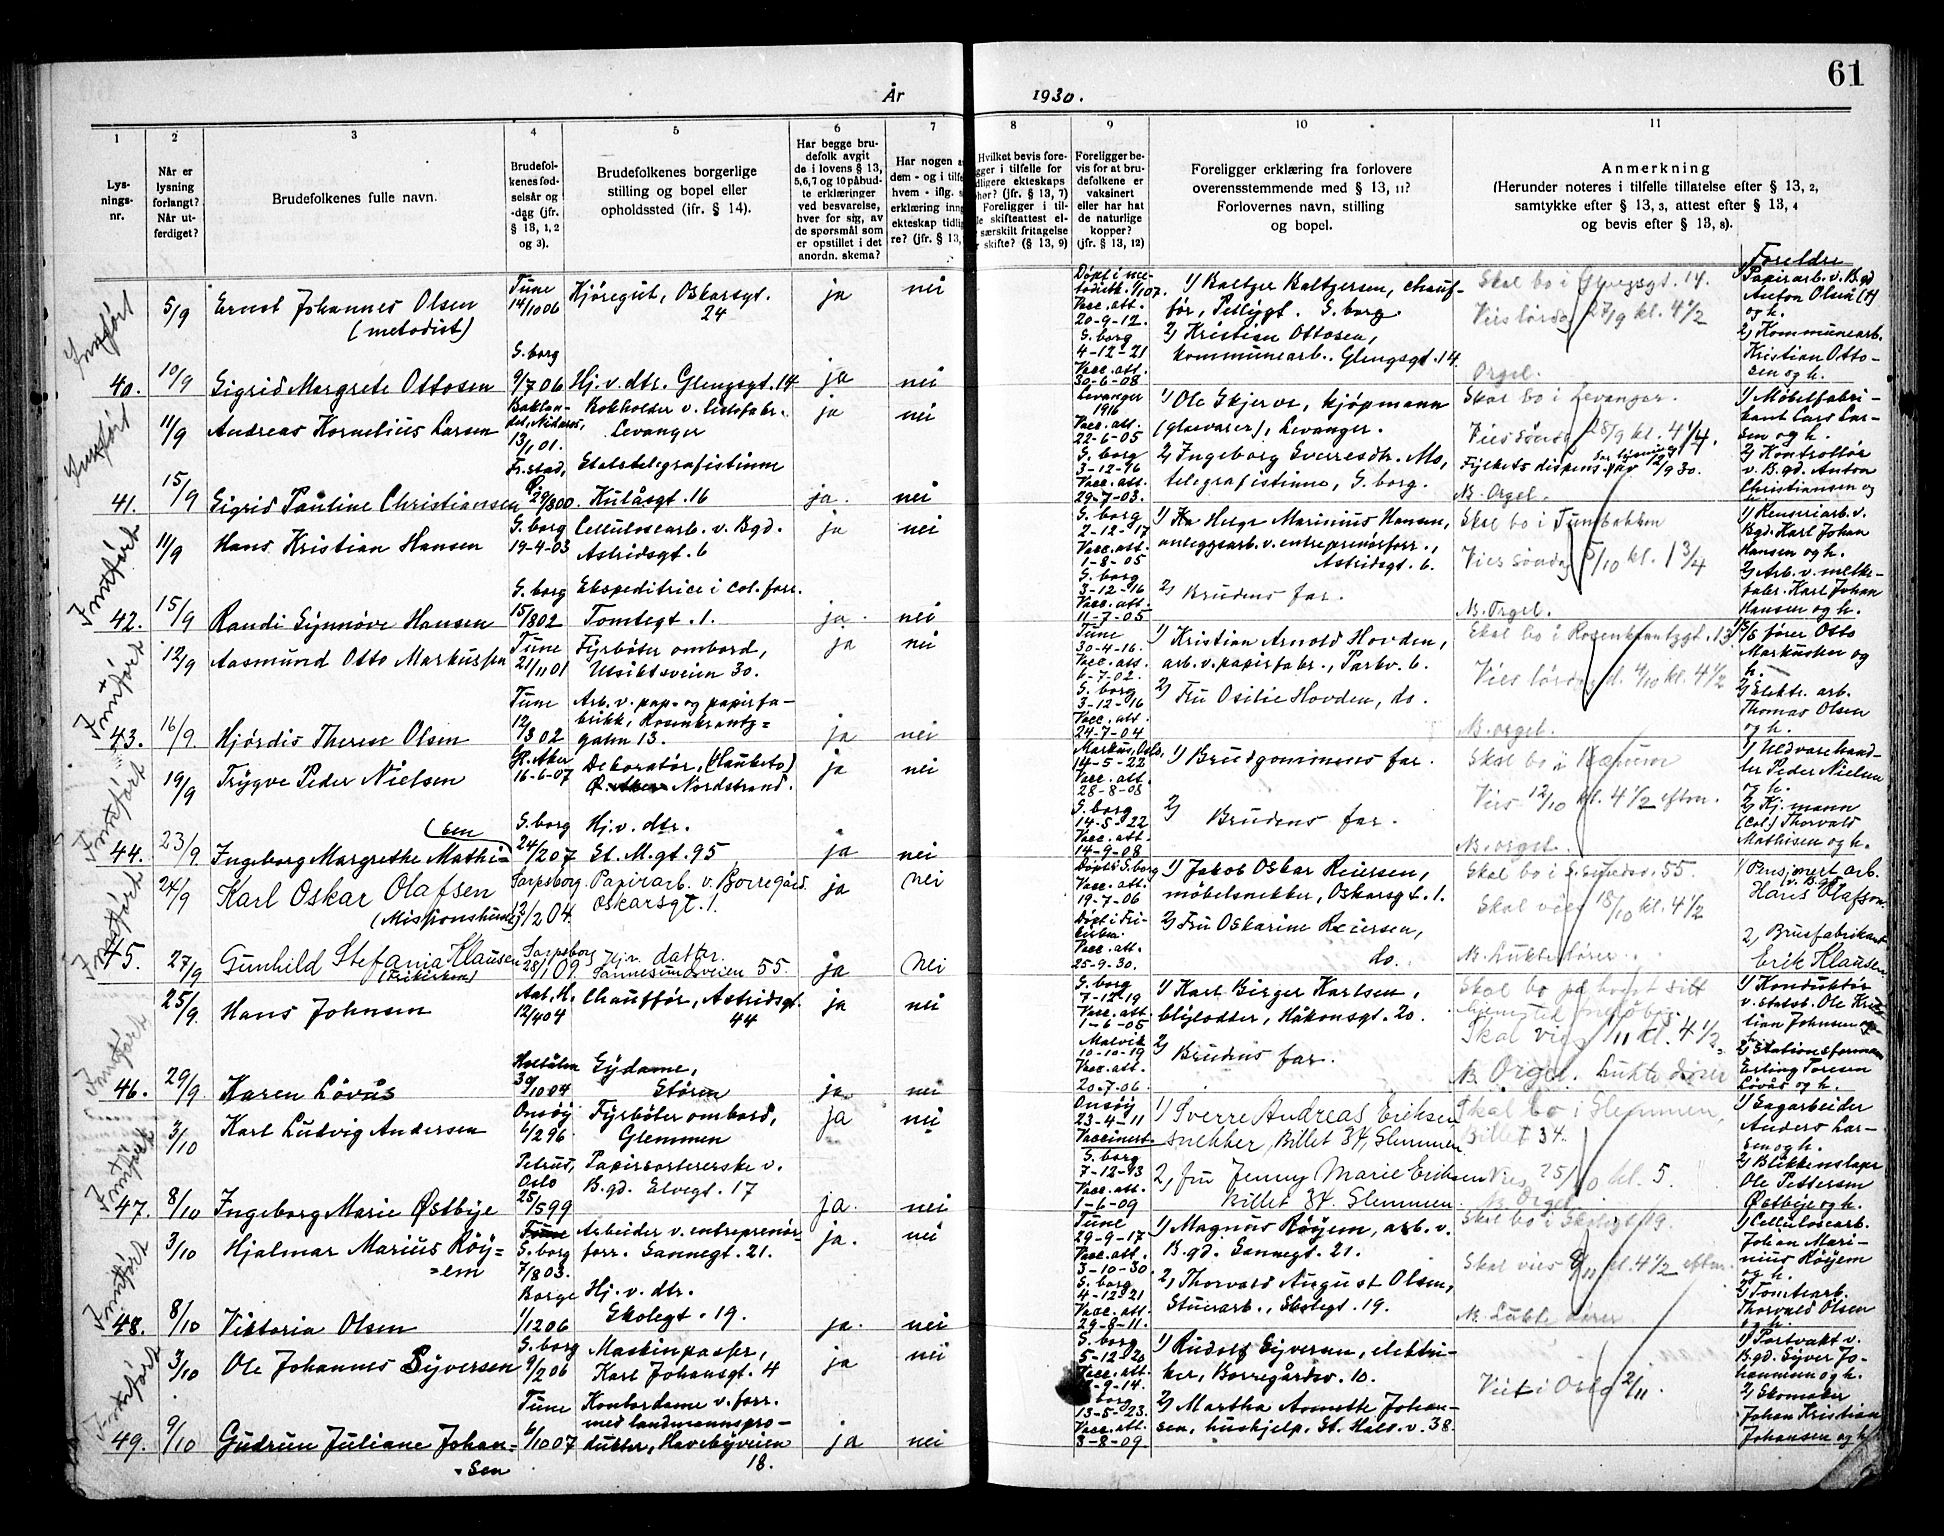 61
År 1930.
1 2 3 4 5 6 7 8 9 10 11
Lys-
nings-
nr.
Når er
lysning
forlangt?
Når ut-
ferdiget?
Brudefolkenes fulle navn.
Brudefol-
kenes fød-
selsår og
-dag (jfr.
§ 13, 1, 2
og 3).
Brudefolkenes borgerlige
stilling og bopel eller
opholdssted (ifr. § 14).
Har begge bru-
defolk avgit
de i lovens § 13,
5, 6, 7 og 10 påbud-
te erklæringer
ved besvarelse,
hver for sig, av
de spørsmål som
er opstillet i det
anordn. skema?
Har nogen a
dem - og i tilfe
hvem - iflg. s
erklæring inng
ekteskap tidlig
re? (jfr. § 13,
Hvilket bevis fore-
gger i tilfelle for
dligere ekteskaps
phør? (jfr. § 13, 7)
Foreligger i til-
le skifteattest el-
særskilt fritagelse
skifte? (§ 13, 9)
Foreligger be-
vis for at bru-
defolkene er
vaksinert
eller har hat
de naturlige
kopper?
(jfr. § 13, 12)
Foreligger erklæring fra forlovere
overensstemmende med § 13, 11?
Forlovernes navn, stilling
og bopel.
Anmerkning
(Herunder noteres i tilfelle tillatelse efter § 13, 2,
samtykke efter § 13, 3, attest efter § 13, 4
og bevis efter § 13, 8).
Foreldre
Innført
40.
5/9
Ernst Johannes Olsen
(metodist)
Tune
14/10 06
Kjøregut, Oskarsgt.
24
ja
nei
Døpt i me-
todistk. 1/1 07.
Vacc. att.
20-9-12.
1) Baltzer Baltzersen, chauf-
før, Pellygt. S.borg
Skal bo i Glengsgt. 14.
Vies lørdag 27/9 kl. 4 1/2
1) Papirarb. v. Bgd
Anton Olsen (†)
og h.
10/9
Sigrid Margrete Ottosen
S.borg
9/7 06
Hj. v. dtr. Glengsgt. 14
ja
nei
S.borg
4-12-21
Vacc. att.
30-6-08
2) Kristian Ottosen,
kommunearb. Glengsgt. 14
Orgel.
2) Kommunearb.
Kristian Otto-
sen og h.
Innført
41.
11/9
Andreas Kornelius Larsen
Baklan-
det, Nidaros,
13/1 01.
Bokholder v. listefabr.
Levanger
ja
nei
Levanger
1916
Vacc. att.
22-6-05
1) Ole Skjerve, kjøpmann
(glassvarer), Levanger.
Skal bo i Levanger.
Vies søndag 28/9 kl. 4 1/4.
1) Møbelfabri-
kant Lars Lar-
sen og h.
15/9
Sigrid Pauline Christiansen
Fr.stad,
Ø.
29/8 00.
Statstelegrafistinne
Kulåsgt. 16
ja.
nei
S.borg
3-12-16
Vacc. att.
29-7-03.
2) Ingeborg Sverresdtr. Mo,
telegrafistinne, S.borg.
Fylkets dispens. av 12/9 30.
N. Orgel.
2) Kontrollør
v. B.gd. Anton
Christiansen og
Innført
42.
11/9
Hans Kristian Hansen
S.borg
19-4-03
Cellulosearb. v. Bgd.
Astridsgt. 6
ja
nei
S.borg
2-12-17
Vacc. att.
1-8-05
1) Helge Marinius Hansen,
anleggsarb. v. entreprenørforr.,
Astridsgt. 6.
Skal bo i Tunebakken
Vies søndag 5/10 kl. 1 3/4
1) Renseriarb. v.
Bgd. Karl Johan
Hansen og h.
15/9
Randi Synnøve Hansen
S.borg
15/8 02
Ekspeditrice i col. forr.
Tomtegt. 1.
ja.
nei
S.borg
3-12-16
Vacc. att.
11-7-05
2) Brudens far.
N. Orgel.
2) Arb. v. melke-
fabr. Karl Johan
Hansen og h.
Innført
43.
12/9
Aasmund Otto Markussen
Tune
21/11 01
Fyrbøter ombord,
Utsiktsveien 30.
ja
nei
Tune
30-4-16.
Vacc. att.
6-7-02.
1) Kristian Arnold Hovden,
arb. v. papirfabr., Parkv. 6.
Skal bo i Rosenkrantzgt. 13
Vies lørdag d. 4/10 kl. 4 1/2
1) S/S fører Otto
Markussen og
h.
16/9
Hjørdis Therese Olsen
Tune
12/3 02
Arb. v. pap- og papirfa-
brikk, Rosenkrantz-
gaten 13.
ja
nei
S.borg
3-12-16
Vacc. att.
24-7-04
2) Fru Osilie Hovden, do.
N. orgel.
2) Elektr. arb.
Thomas Olsen
og h.
Innført
44.
19/9
Trygve Peder Nielsen
Gl. Aker
16-6-07
Dekoratør, (Hauketo)
Nordstrand.
ja
nei
Markus, Oslo,
14-5-22
Vacc. att.
28-8-08
1) Brudgommens far.
Skal bo i
Vies 12/10 kl. 4 1/2 eftm.
1) Uldvarehand-
ler Peder Nielsen
og h.
23/9.
Ingeborg Margrethe Mathi-
(sen
S.borg
24/2 07
Hj. v. dtr.
St. M.gt. 95
ja
nei
S.borg
14-5-22
Vacc. att.
14-9-08
2) Brudens far.
N. orgel.
2) Kj.mann
(col) Thorvald
Mathisen og h.
Innført
45.
24/9
Karl Oskar Olafsen
(Misjonshuse)
Sarpsborg
12/2 04.
Papirarb. v. Borregård.
Oskarsgt. 1.
ja
Nei
Døpt i S.borg
Vacc. att.
19-7-06
1) Jakob Oskar Reiersen,
møbelsnekker, Oskarsgt. 1.
Skal vies 18/10 kl. 4 1/2
1) Pensjonert arb.
v. B.gd.
Hans Olafsen.
27/9
Gunhild Stefania Klausen
(Frikirken)
Sarpsborg
28/1 09.
Hjv. datter.
Sannesundveien 55.
ja
Nei
Døpt i Fri-
kirken.
Vacc. att.
25-9-30.
2) Fru Oskarine Reiersen,
do.
N. Lukte dører.
2, Brusfabrikant
Erik Klausen
Innført
46.
25/9.
Hans Johnsen
12/4 04
Chauffør, Astridsgt.
44
ja
nei
S.borg
7-12-19
Vacc. att.
1-6-05
1) Karl Birger Karlsen,
Håkonsgt. 20.
Skal bo på
Skal vies 1/11 kl. 4 1/2
1) Konduktør
v. statsb. Ole Kris-
tian Johnsen og
h.
29/9
Karen Løvås
30/10 04
Sydame,
Støren
ja.
nei
Malvik
10-10-19
Vacc. att.
20-7-06.
2) Brudens far.
N. Orgel. Lukte dører
2) Stationsformann
Erling Toresen
Løvås og h.
Innført
47.
3/10
Karl Ludvig Andersen
Onsøy
6/2 96.
Fyrbøter ombord,
Glemmen
ja
nei
Onsøy
23-4-11
Vaccinert.
1) Sverre Andreas Eriksen
snekker, Billet 34, Glemmen
Skal bo i Glemmen,
Billet 34.
1) Sagarbeider
Anders Lar-
sen og h.
8/10
Ingeborg Marie Østbye
Petrus,
Oslo
25/5 99
Papirsortererske v.
B.gd. Elvegt. 17
ja.
nei
S.borg
7-12-13
Vacc. att.
1-6-09
2, Fru Jenny Marie Eriksen
Billet 34. Glemmen
Vies 25/10 kl. 5.
N. Orgel
2) Blikkenslager
Ole Pettersen
Østbye og h.
Innført
48.
3/10
Hjalmar Marius Røy-
=em
Tune
S.borg
7/8 03.
Arbeider v. entreprenør-
forr. Sannegt. 21.
ja.
nei
Tune
29-9-17
Vacc. att.
3-10-30.
1) Magnus Røyem, arb. v.
B.gd. Sannegt. 21.
Skal bo i Skolegt. 19.
Skal vies 8/11 kl. 4 1/2 eftm.
1) Cellulosearb.
Johan Mari-
nius Røyem
og h.
8/10
Viktoria Olsen
Borge
1/12 06
Hj. v. dtr.
Skolegt. 19.
ja.
nei
S.borg
4-12-21
Vacc. att.
29-8-11.
2, Thorvald August Olsen,
Stuerarb., Skolegt. 19.
N. Lukte dører
2) Tomtearb.
Thorvald Olsen
og h.
Innført
49.
3/10
Ole Johannes Syversen
S.borg
9/2 06
Maskinpasser,
Karl Johansgt. 4
ja
nei
S.borg
5-12-20
Vacc. att.
-9-14.
1) Rudolf Syversen, elektri-
ker, Borregårdsv. 10.
Viet i Oslo 2/11.
1) Portvakt v.
B.gd. Syver Jo-
hannesen og h.
9/10
Gudrun Juliane Johan=
=sen
Tune
6/10 07
Kontordame v. forr.
med landmannspro-
dukter, Havebyveien
18.
ja
nei
borg
13-5-23.
Vacc. att.
3-8-09.
2) Martha Annette Johan-
sen, hushjelp, St. Hals. v. 38.
2) Skomaker
Johan Kristian
Johansen og h.